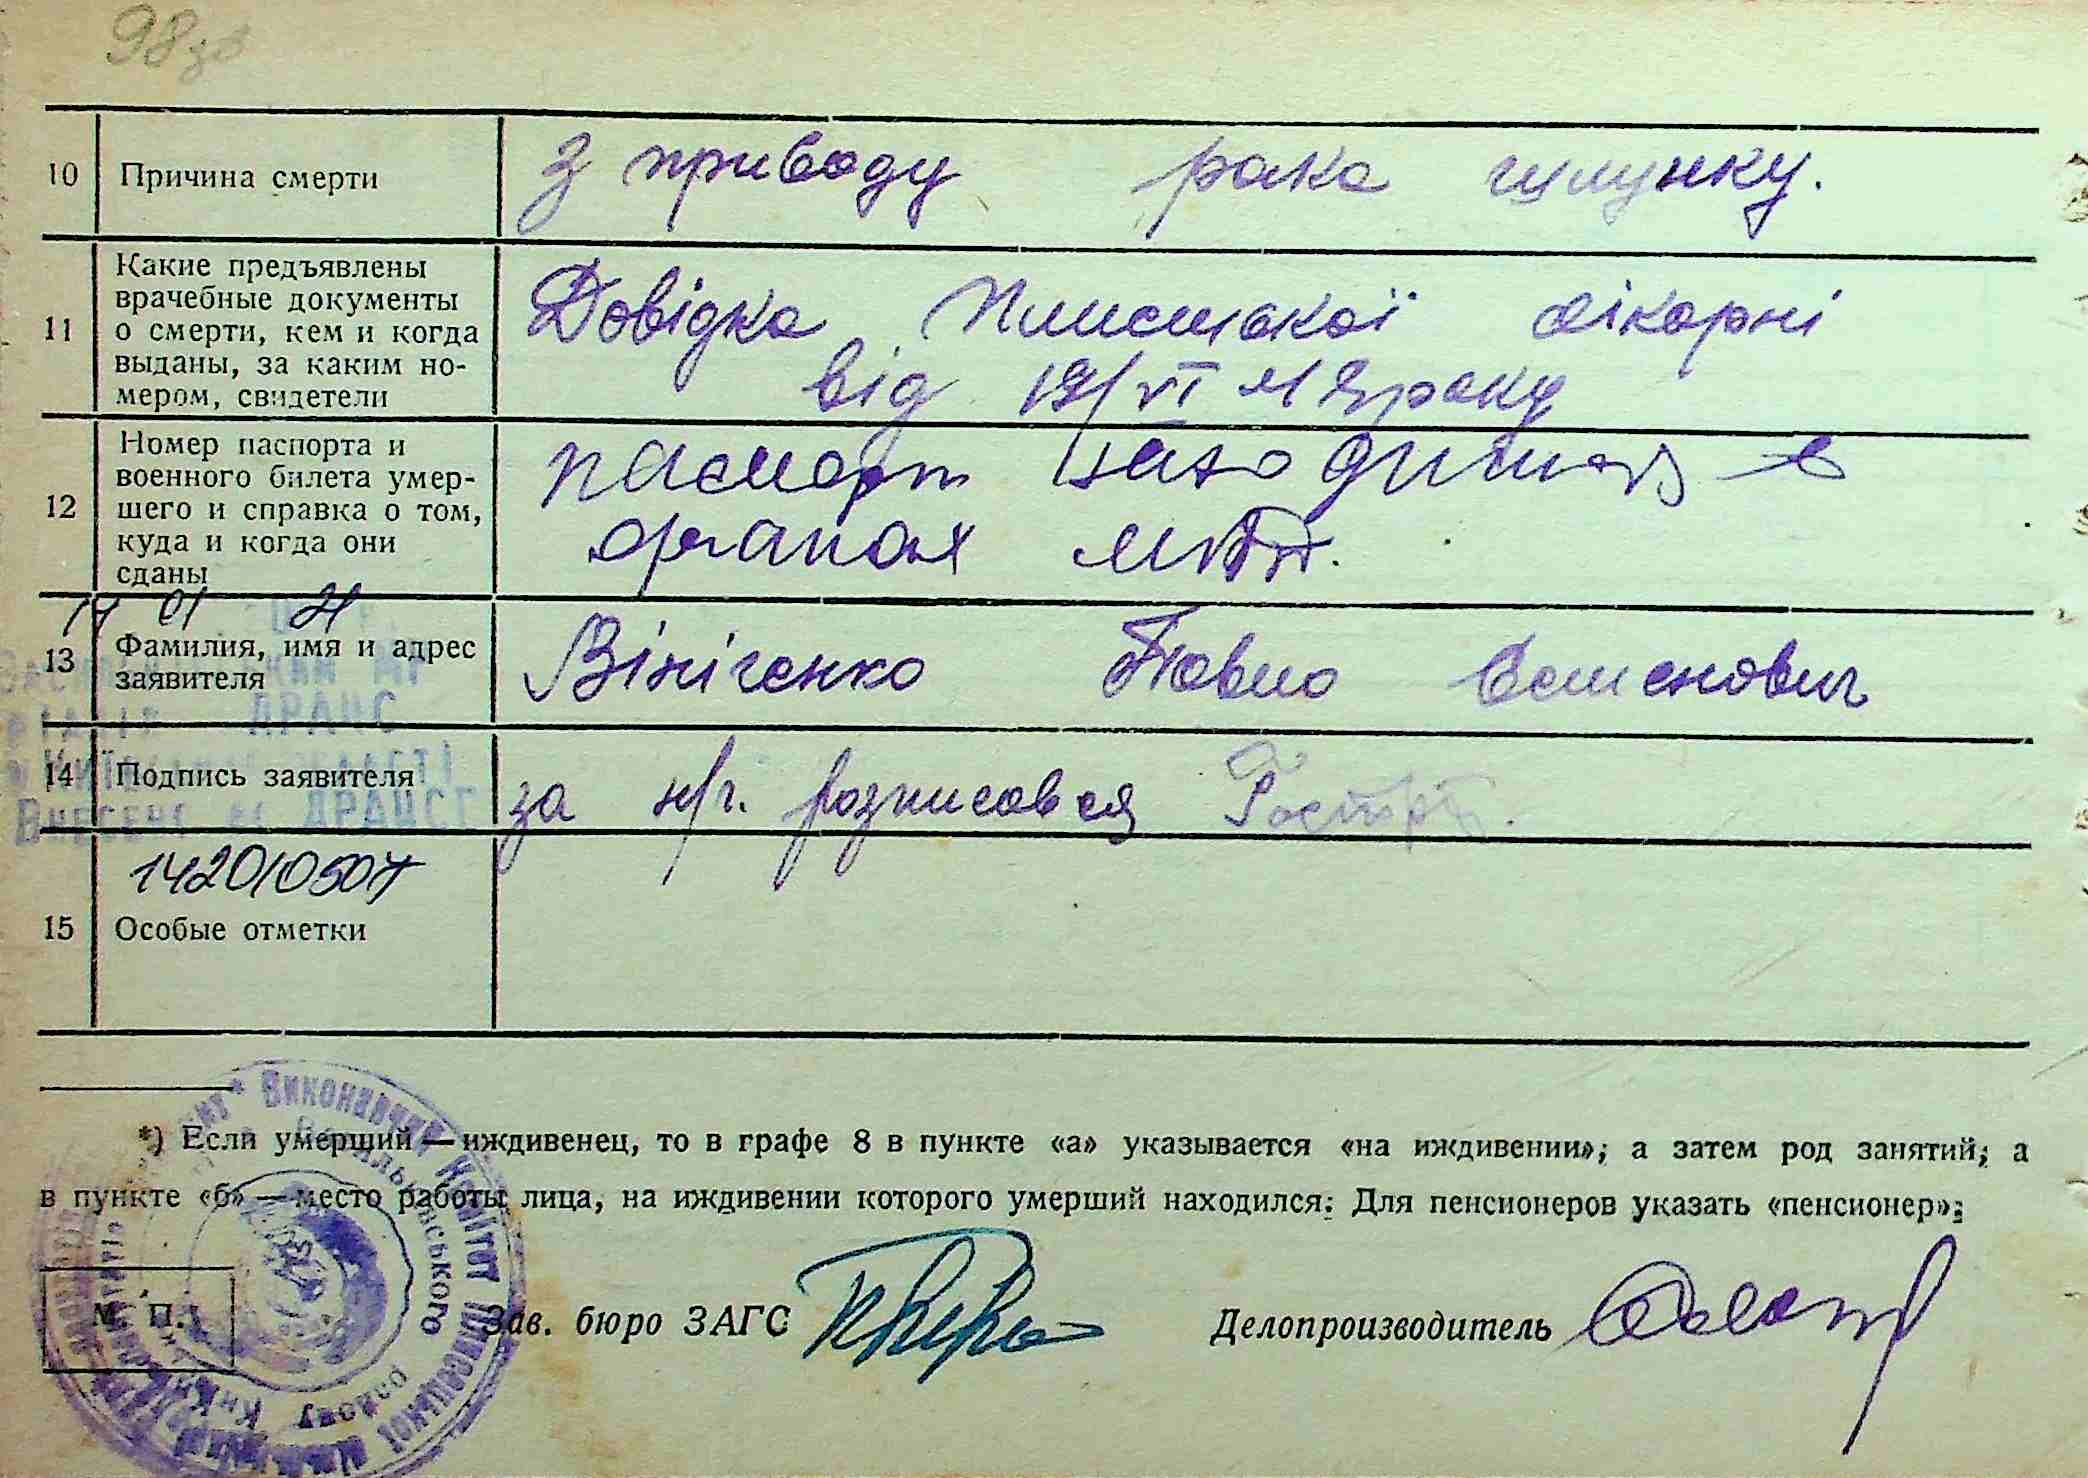 98зв
10 Причина смерти
З приводу рака шлунку.
11 Какие предъявлены врачебные документы о смерти, кем и когда выданы, за каким но-мером, свидетели
Довідка Плисецької лікарні
від 19/VI
року
12 Номер паспорта и военного билета умер-шего и справка о том, куда и когда они сданы
паспорт находиться в
органах
13 Фамилия, имя и адрес заявителя
Вініченко Павло Семенович
ДРАЦС
14 Подпись заявителя
за н/г. розписався
ДРАЦСГ
14201050
15 Особые отметки
*) Если умерший — иждивенец, то в графе 8 в пункте «а» указывается «на иждивении»; а затем род занятий; а
в пункте «б» — место работы лица, на иждивении которого умерший находился: Для пенсионеров указать «пенсионер»;
Виконавчий Комітет
Васильківського
району
М. П.
Зав. бюро ЗАГС
Делопроизводитель